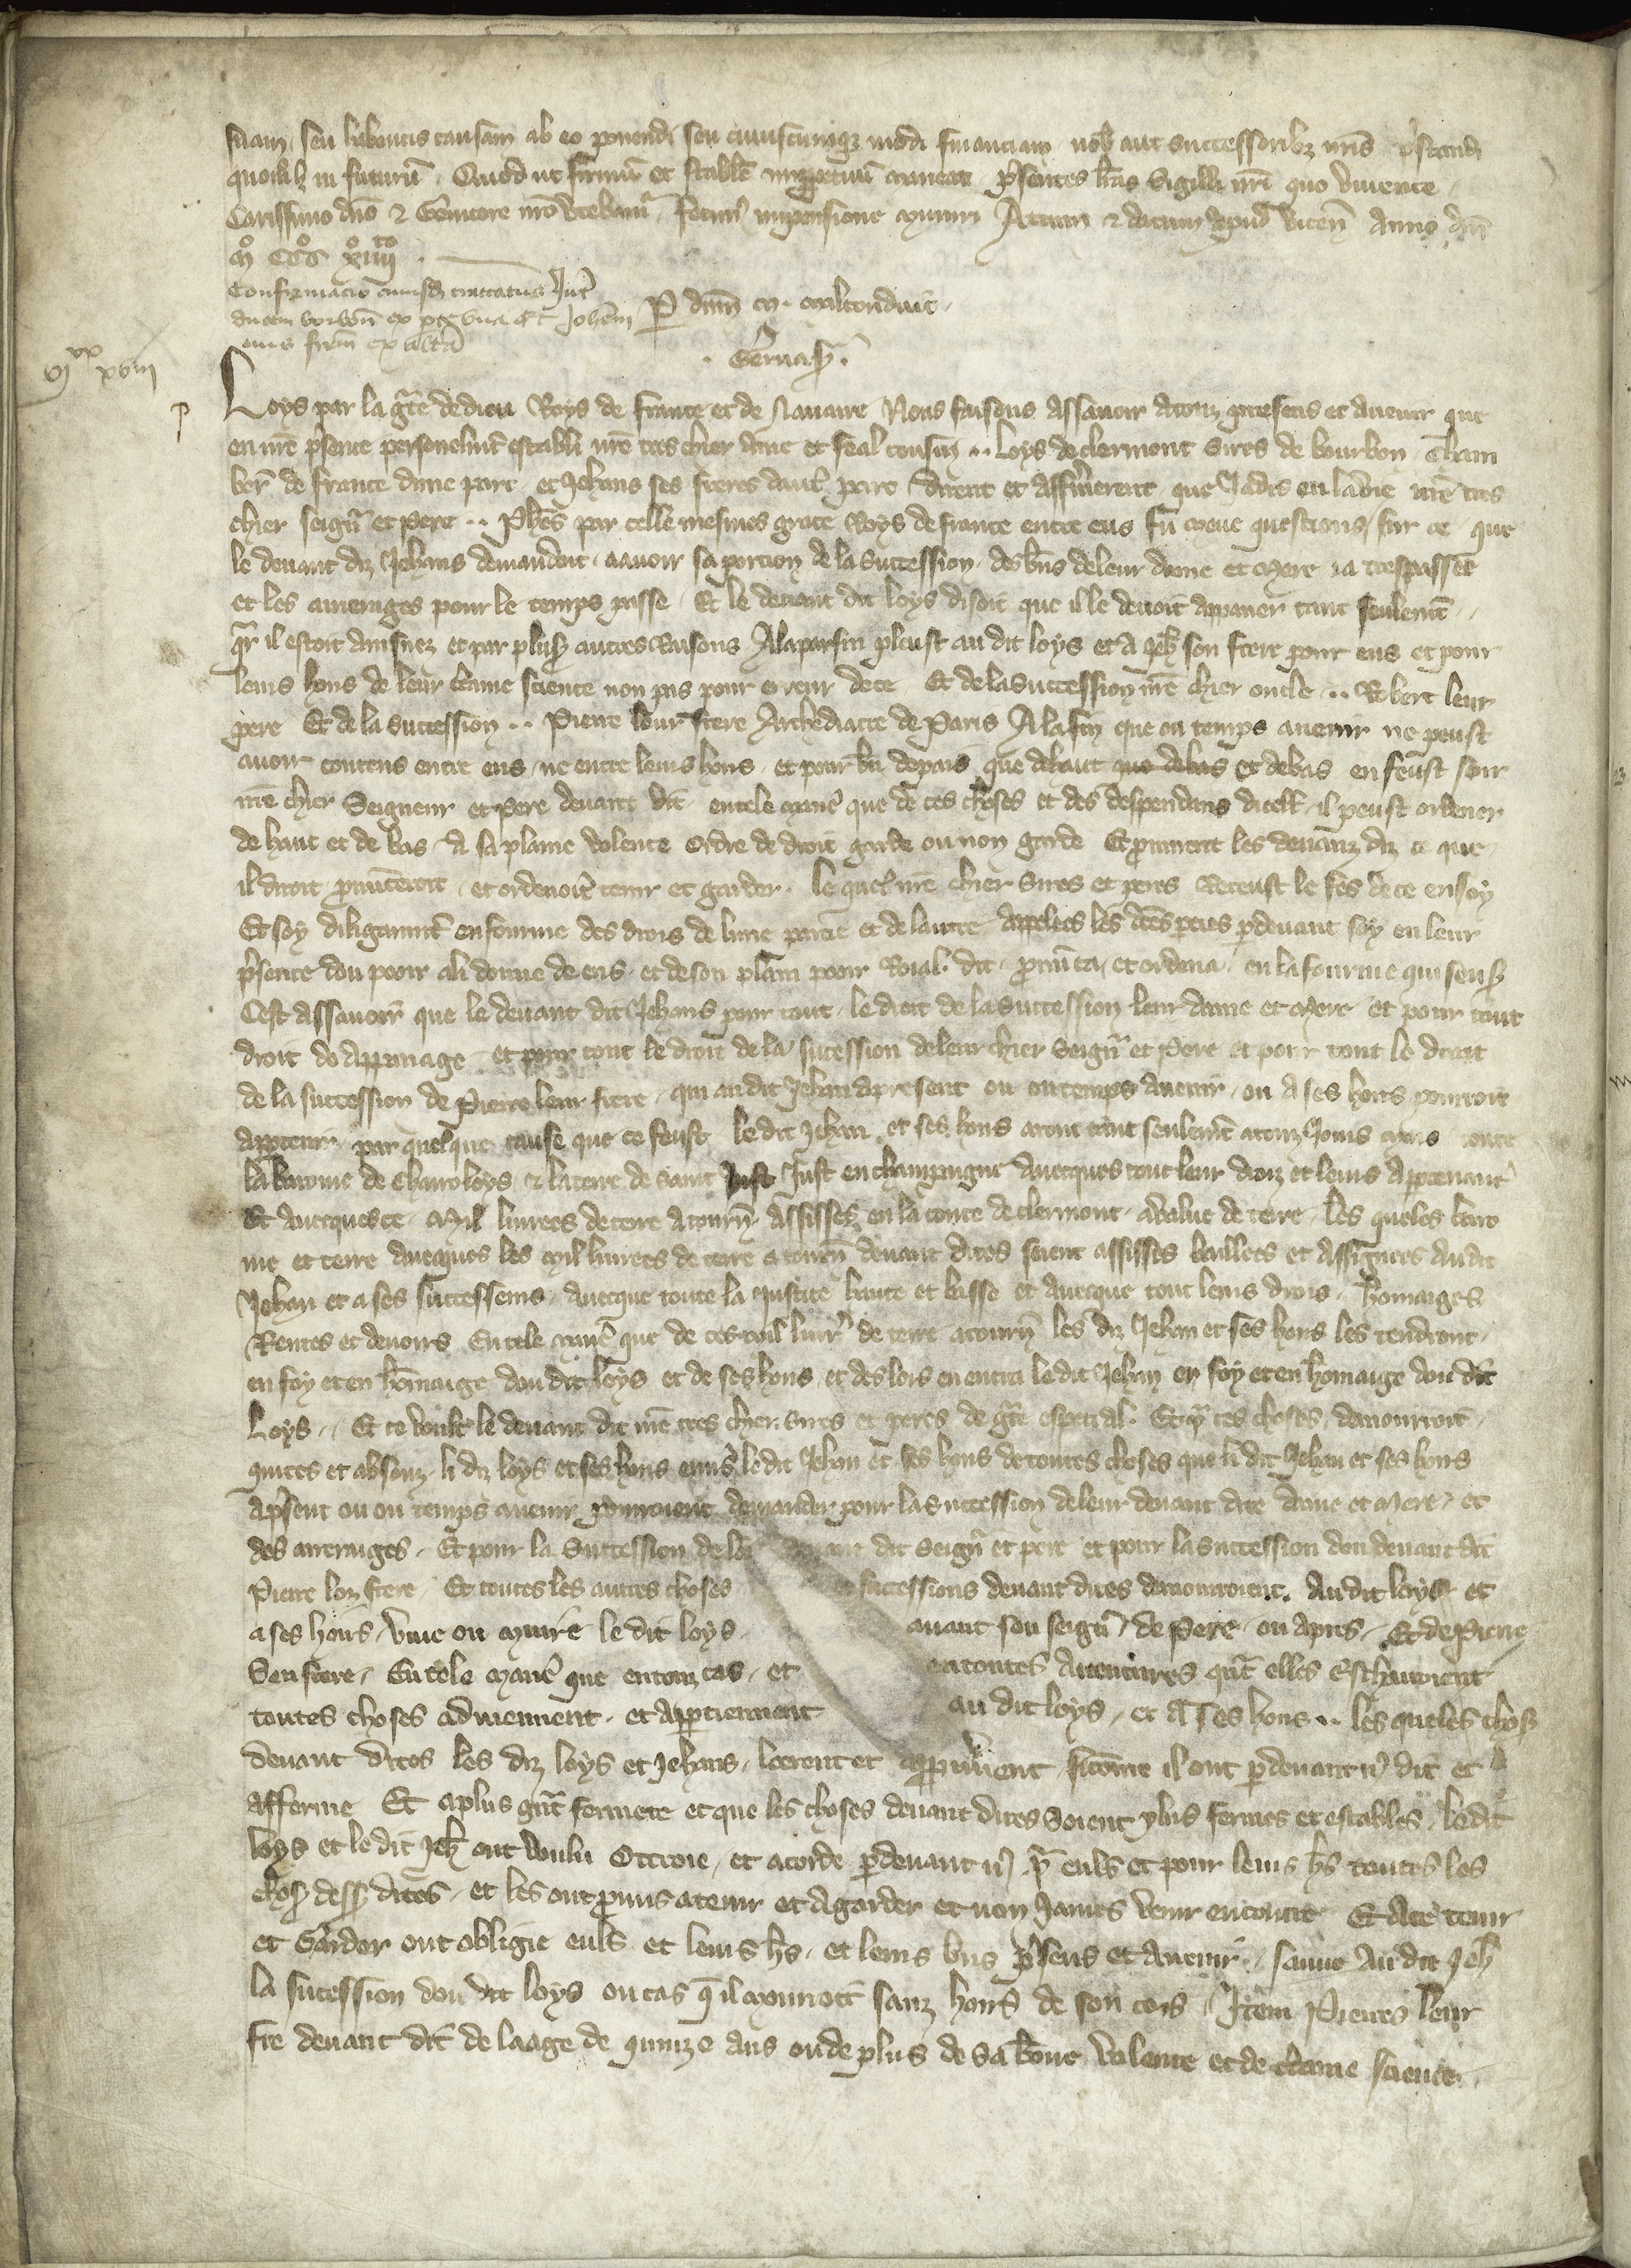 suam, seu habentis causam ab eo ponendi seu cuiuscunq modi financiam nob aut successoribz nris pstandi
quolibz in futurū. Quod ut firmū et stabile imppetuū maneat psentes lras Sigilli nri quo vivente
Carissimo dno & Genitore nro vtebamr, fecim impensione muniri Actum & datum apud vicen Anno dni
mo ccco xiiiito
Confirmacio cuiusd tractatus Intr
ducem borbon ex pte una et Johem
eius frem ex altera
P dnm m.
Gervasi.
vixx xviii
Loys par la grace de dieu Roys de france et de Navarre Nous faisons assavoir a touz presens et avenir que
en nre psence personelmt establi nre tres chier ame et feal cousin .. Loys de clermont Sires de bourbon Cham
ber de france dune part et Jehans ses freres dautre part distrent et affermerent que Jadis en la vie nre tres
chier seignr et Pere .. Phes par celle mesmes grace Roys de france entre eus fu meue questions, sur ce que
le devant diz Jehans demandoit, a avoir sa porcion de la succession des bns de leur dame et mere ia trespassee
et les arreraiges pour le temps passe. Et le devant dit loys disoit que il le devoit appaner tant seulemt
qar il estoit ainsnez et par plus autres Raisons A la parfin pleust au dit loys et a Jeh son frere pour eus et pour
leurs hoirs de leur certaine science non pas pour erreur de ce Et de la succession nre chier oncle .. Robert leur
pere Et de la succession .. Pierre leur frere Archediacre de Paris A la fin que ou temps avenir ne peust
avoir contens entre eus, ne entre leurs hoirs, et pour bn de pais que de haut que debas et de bas en feust sour
nre chier Seigneur et Pere devant dit en tele mane que de ces choses et des despendans dicelles il peust ordener
de haut et de bas a sa plaine volente Ordre de droit garde ou non garde Et promirent les devanz diz ce que
il diroit pnunceroit, et ordenoit tenir et garder. le quel nre chier Sires et peres Receust le fes de ce en soy
Et soy diligaumt enfourme des drois de lune partie et de lautre Appelees les dces pties pdevant soy en leur
psence dou pooir a li donne de eus, et de son plain pooir Roial. dit pnunca, et ordena, en la fourme qui sensuit
Cest assavoir que le devant dit Jehans pour tout, le droit de la succession leur dame et mere et pour tout
droit de appanage et pour tout le droit de la sucession de leur chier Seignr et Pere et pour tout le droit
de la succession de Pierre leur frere, qui au dit Jehan a present ou ou temps avenir, ou a ses hoirs pourroit
apptenir, par quelque cause que ce feust le dit Jehan, et ses hoirs aront tant seulemt a touz Jours mais toute
la baronie de Charroloys & la terre de saint Just Just en champagne Avecques tout leur droiz et leurs apptenance
Et avecques ce mil livrees de terre a tourn. Assisses en la conte de clermont a value de terre. les queles baro
nie et terre avecques les mil livrees de terre a tourn devant dites soient assisses baillees et Assignees au dit
Jehan et a ses successeurs, avecque toute la Justice haute et basse et avecque tout leurs drois, homaiges
Rentes et devoirs En tele mane que de ces mil livr de terre a tourn les diz Jehan et ses hoirs les tendront
en foy et en homaige dou dit loys et de ses hoirs, et des lors en entra le dit Jehan en foy et en homaige dou dit
Loys .. Et ce voult le devant dit nre tres chier Sires et peres de gce especial. Et p ces choses demourroit
quites et absouz li diz loys et ses hoirs envs le dit Jehan et ses hoirs de toutes choses que li dit Jehan et ses hoirs
a psent ou ou temps avenir pourroient demander pour la succession de leur devant dite dame et mere, et
des arreraiges, Et pour la Succession de leur devant dit Seignr et pere et pour la succession dou devant dit
Pierre lor frere. Et toutes les autres choses successions devant dites demourroient. Au dit loys et
a ses hoirs, vive ou muire le dit loys avant son seignr de Pere ou apres, Et de Pierre
Son frere, En tele mane que en touz cas, et en toutes aventures qnt elles escharroient
toutes choses adviennent, et apptiennent au dit loys, et a ses hoirs .. les queles choses
devant dites les diz loys et Jehans, loerent et approuverent, sicome il ont pdevant nos dit et
afferme Et a plus gnt fermete et que les choses devant dites soient plus fermes et estables le dit
loys et le dit Jeh ont voulu Octroie, et acorde pdevant nos pr euls et pour leurs hs toutes les
choses dess dites, et les ont pmis a tenir et a garder et non James venir encontre Et a ce tenir
et Garder ont obligie euls et leurs hs, et leurs bns psens et avenir, sauve au dit Jeh
la sucession dou dit loys ou cas q il mourroit sanz hoirs de son cors Item Pierres leur
fre devant dit de laage de quinze ans ou de plus de sa bonne volente et de certaine science